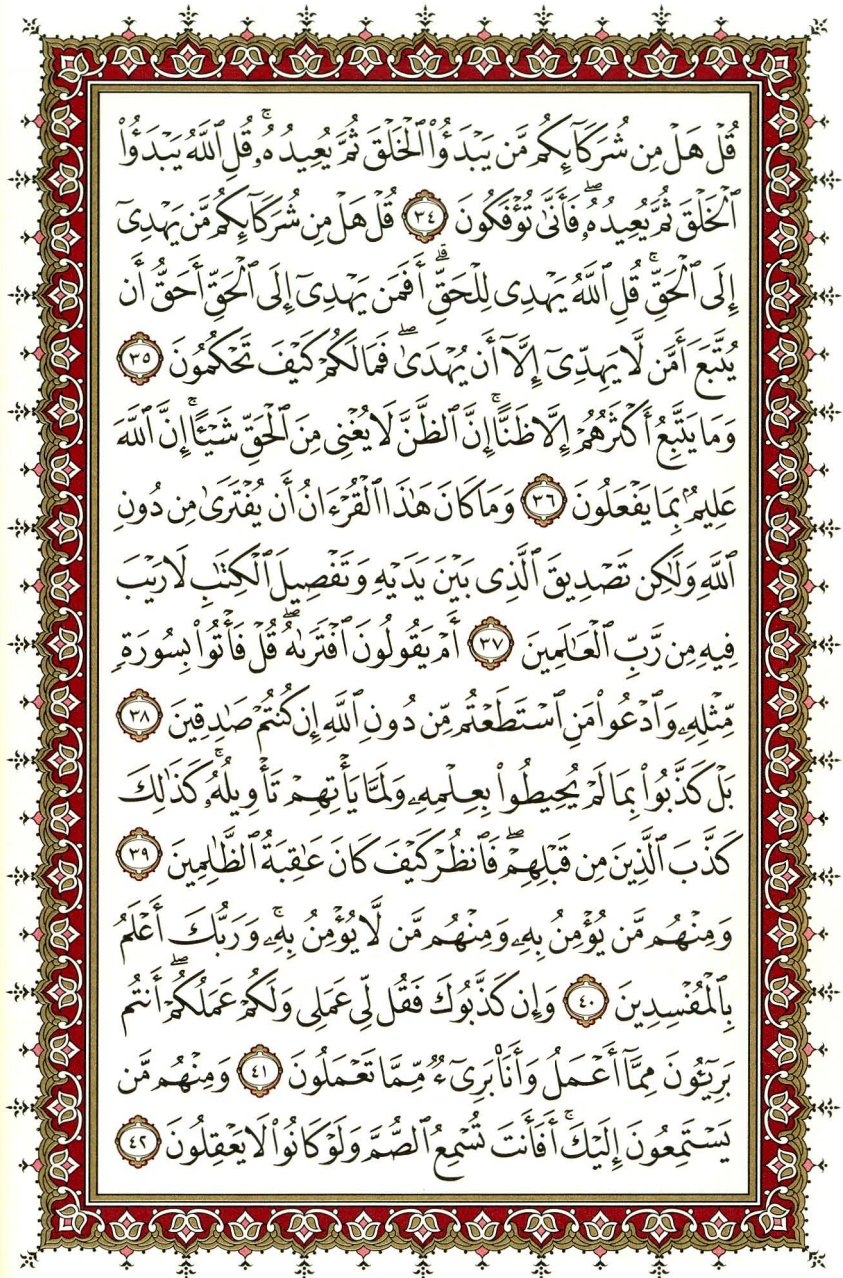 قُلْ هَلْ مِن شُرَكَآئِكُم مَّن يَبْدَؤُا۟ ٱلْخَلْقَ ثُمَّ يُعِيدُهُۥ ۚ قُلِ ٱللَّهُ يَبْدَؤُا۟
ٱلْخَلْقَ ثُمَّ يُعِيدُهُۥ ۖ فَأَنَّىٰ تُؤْفَكُونَ ٣٤ قُلْ هَلْ مِن شُرَكَآئِكُم مَّن يَهْدِىٓ
إِلَى ٱلْحَقِّ ۚ قُلِ ٱللَّهُ يَهْدِى لِلْحَقِّ ۗ أَفَمَن يَهْدِىٓ إِلَى ٱلْحَقِّ أَحَقُّ أَن
يُتَّبَعَ أَمَّن لَّا يَهِدِّىٓ إِلَّآ أَن يُهْدَىٰ ۖ فَمَا لَكُمْ كَيْفَ تَحْكُمُونَ ٣٥
وَمَا يَتَّبِعُ أَكْثَرُهُمْ إِلَّا ظَنًّا ۚ إِنَّ ٱلظَّنَّ لَا يُغْنِى مِنَ ٱلْحَقِّ شَيْـًٔا ۚ إِنَّ ٱللَّهَ
عَلِيمٌۢ بِمَا يَفْعَلُونَ ٣٦ وَمَا كَانَ هَـٰذَا ٱلْقُرْءَانُ أَن يُفْتَرَىٰ مِن دُونِ
ٱللَّهِ وَلَـٰكِن تَصْدِيقَ ٱلَّذِى بَيْنَ يَدَيْهِ وَتَفْصِيلَ ٱلْكِتَـٰبِ لَا رَيْبَ
فِيهِ مِن رَّبِّ ٱلْعَـٰلَمِينَ ٣٧ أَمْ يَقُولُونَ ٱفْتَرَىٰهُ ۖ قُلْ فَأْتُوا۟ بِسُورَةٍ
مِّثْلِهِۦ وَٱدْعُوا۟ مَنِ ٱسْتَطَعْتُم مِّن دُونِ ٱللَّهِ إِن كُنتُمْ صَـٰدِقِينَ ٣٨
بَلْ كَذَّبُوا۟ بِمَا لَمْ يُحِيطُوا۟ بِعِلْمِهِۦ وَلَمَّا يَأْتِهِمْ تَأْوِيلُهُۥ ۚ كَذَٰلِكَ
كَذَّبَ ٱلَّذِينَ مِن قَبْلِهِمْ ۖ فَٱنظُرْ كَيْفَ كَانَ عَـٰقِبَةُ ٱلظَّـٰلِمِينَ ٣٩
وَمِنْهُم مَّن يُؤْمِنُ بِهِۦ وَمِنْهُم مَّن لَّا يُؤْمِنُ بِهِۦ ۚ وَرَبُّكَ أَعْلَمُ
بِٱلْمُفْسِدِينَ ٤٠ وَإِن كَذَّبُوكَ فَقُل لِّى عَمَلِى وَلَكُمْ عَمَلُكُمْ ۖ أَنتُم
بَرِيٓـُٔونَ مِمَّآ أَعْمَلُ وَأَنَا۠ بَرِىٓءٌ مِّمَّا تَعْمَلُونَ ٤١ وَمِنْهُم مَّن
يَسْتَمِعُونَ إِلَيْكَ ۚ أَفَأَنتَ تُسْمِعُ ٱلصُّمَّ وَلَوْ كَانُوا۟ لَا يَعْقِلُونَ ٤٢